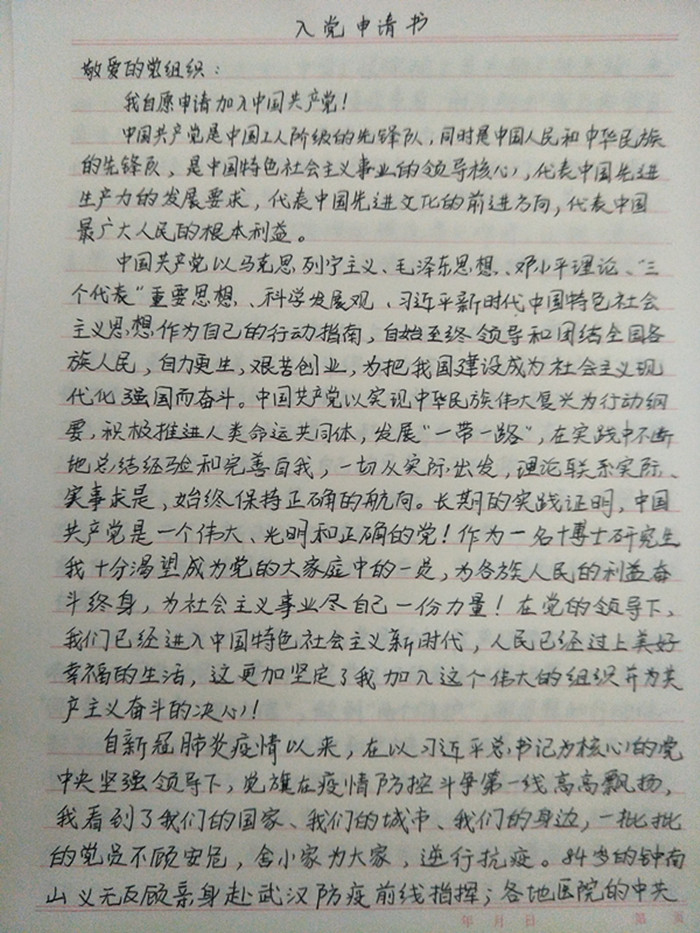 入党申请书
敬爱的党组织：
我自愿申请加入中国共产党！
中国共产党是中国工人阶级的先锋队，同时是中国人民和中华民族
的先锋队，是中国特色社会主义事业的领导核心，代表中国先进
生产力的发展要求，代表中国先进文化的前进方向，代表中国
最广大人民的根本利益。
中国共产党以马克思列宁主义、毛泽东思想、邓小平理论、“三
个代表”重要思想、科学发展观、习近平新时代中国特色社会
主义思想作为自己的行动指南，自始至终领导和团结全国各
族人民，自力更生，艰苦创业，为把我国建设成为社会主义现
代化强国而奋斗。中国共产党以实现中华民族伟大复兴为行动纲
要，积极推进人类命运共同体，发展“一带一路”，在实践中不断
地总结经验和完善自我，一切从实际出发，理论联系实际、
实事求是，始终保持正确的航向。长期的实践证明，中国
共产党是一个伟大、光明和正确的党！作为一名博士研究生
我十分渴望成为党的大家庭中的一员，为各族人民的利益奋
斗终身，为社会主义事业尽自己一份力量！在党的领导下，
我们已经进入中国特色社会主义新时代，人民已经过上美好
幸福的生活，这更加坚定了我加入这个伟大的组织并为共
产主义奋斗的决心！
自新冠肺炎疫情以来，在以习近平总书记为核心的党
中央坚强领导下，党旗在疫情防控斗争第一线高高飘扬，
我看到了我们的国家、我们的城市、我们的身边，一批批
的党员不顾安危，舍小家为大家，逆行抗疫。84岁的钟南
山义无反顾亲身赴武汉防疫前线指挥；各地医院的中共
年 月 日 第 页